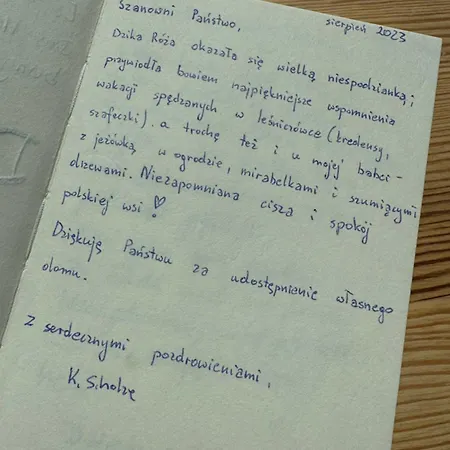 sierpień 2023
Szanowni Państwo,
Dzika Róża okazała się wielką niespodzianką;
przywiodła bowiem najpiękniejsze wspomnienia
wakacji spędzanych w leśniczówce (kredensy,
szafeczki). a trochę też i u mojej babci -
z jeżówką w ogrodzie, mirabelkami i szumiącymi
drzewami. Niezapomniana cisza i spokój
polskiej wsi!
Dziękuję Państwu za udostępnienie własnego
domu.
Z serdecznymi pozdrowieniami,
K.